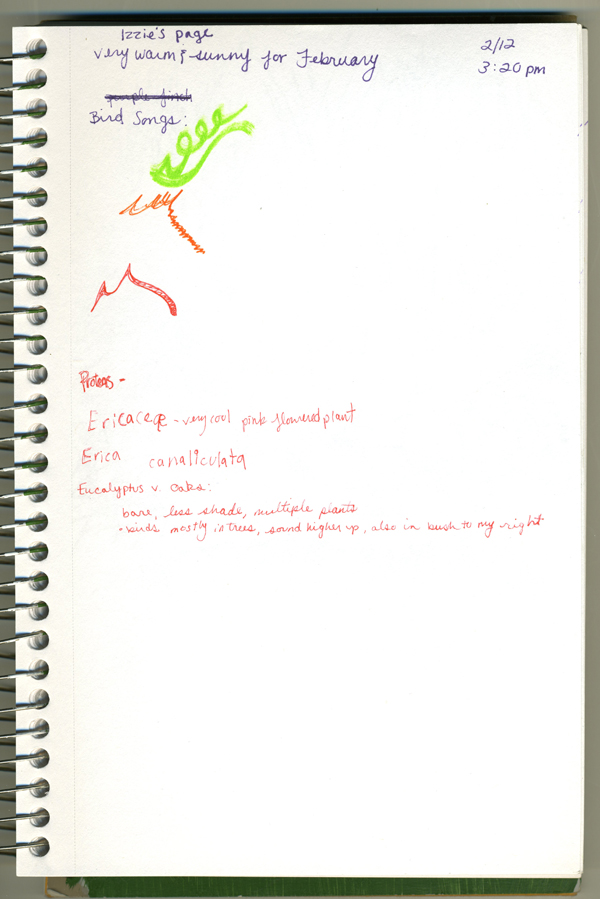 Izzie's page
very warm & sunny for February
2/12
3:20 pm
purple finch
Bird Songs:
Proteas -
Ericaceae - very cool pink flowered plant
Erica canaliculata
Eucalyptus v. Oaks:
bare, less shade, multiple plants
• birds mostly in trees, sound higher up, also in bush to my right